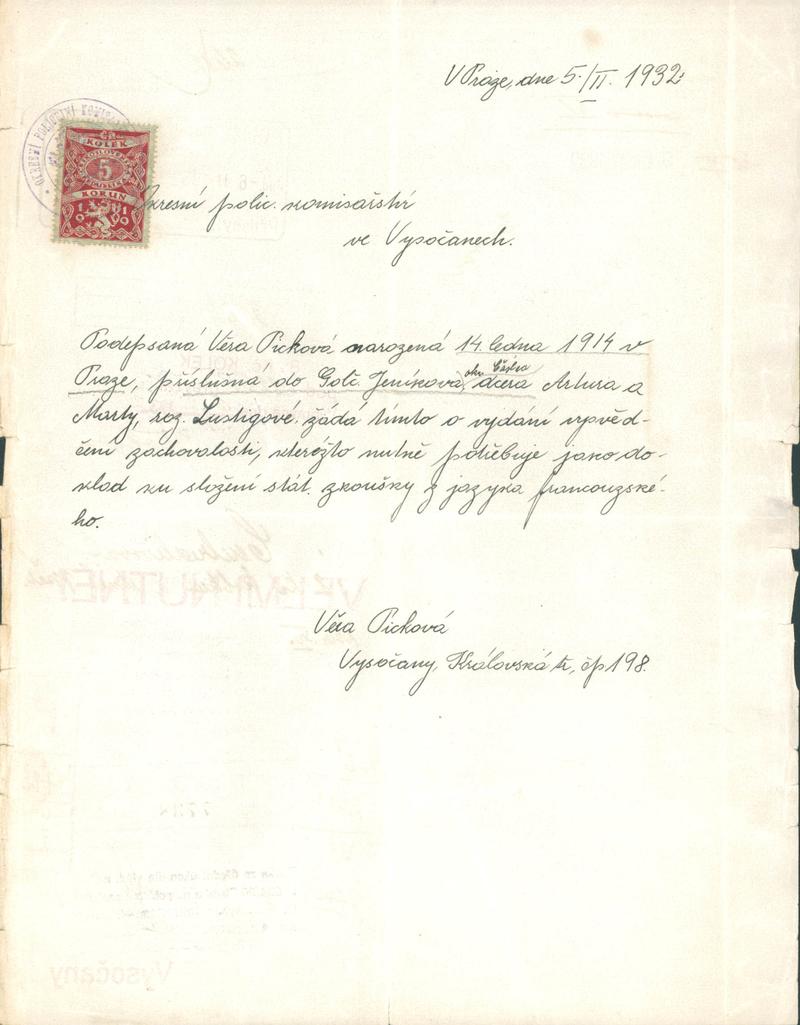 V Praze, dne 5./II. 1932.
OKRESNÍ POLICEJNÍ KOMIS
ČR.
KOLEK
5
KORUN
1919
Okresní polic. komisařství
ve Vysočanech.
Podepsaná Věra Picková narozená 14. ledna 1914 v
Praze, příslušná do Golč. Jeníkova, okr. Čáslav dcera Artura a
Marty, roz. Lustigové žádá tímto o vydání vysvěd-
čení zachovalosti, kteréžto nutně potřebuje jako do-
klad ku složení stát. zkoušky z jazyka francouzské-
ho.
Věra Picková
Vysočany, Královská tř., čp 198.
Vysočany